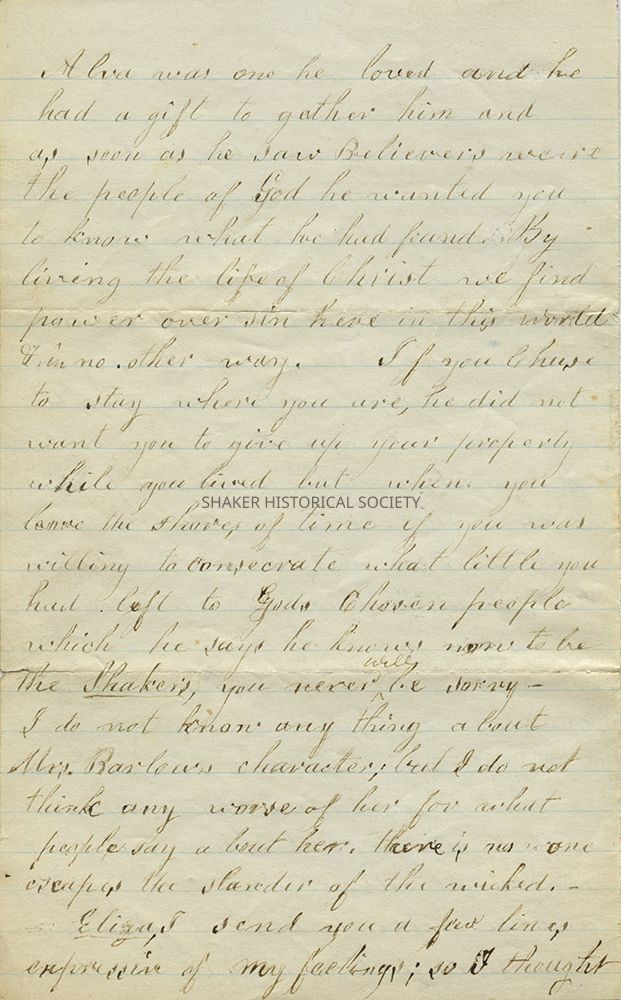 Alva was one he loved and he
had a gift to gather him and
as soon as he saw Believers weere
the people of God he wanted you
to know what he had found. By
living the life of Christ we find
power over sin here in this world
& in no other way. If you Chuse
to stay where you are, he did not
want you to give up your property
while you lived but when you
leave the shores of time if you was
SHAKER HISTORICAL SOCIETY
willing to consecrate what little you
had left to Gods Chosen people
which he says he knows now to be
the Shakers, you never will be sorry —
I do not know any thing about
Mrs. Barlows character; but I do not
think any worse of her for what
people say a bout her. there is no one
escapes the slander of the wicked. —
Eliza, I send you a few lines
expressive of my feelings; so I thought